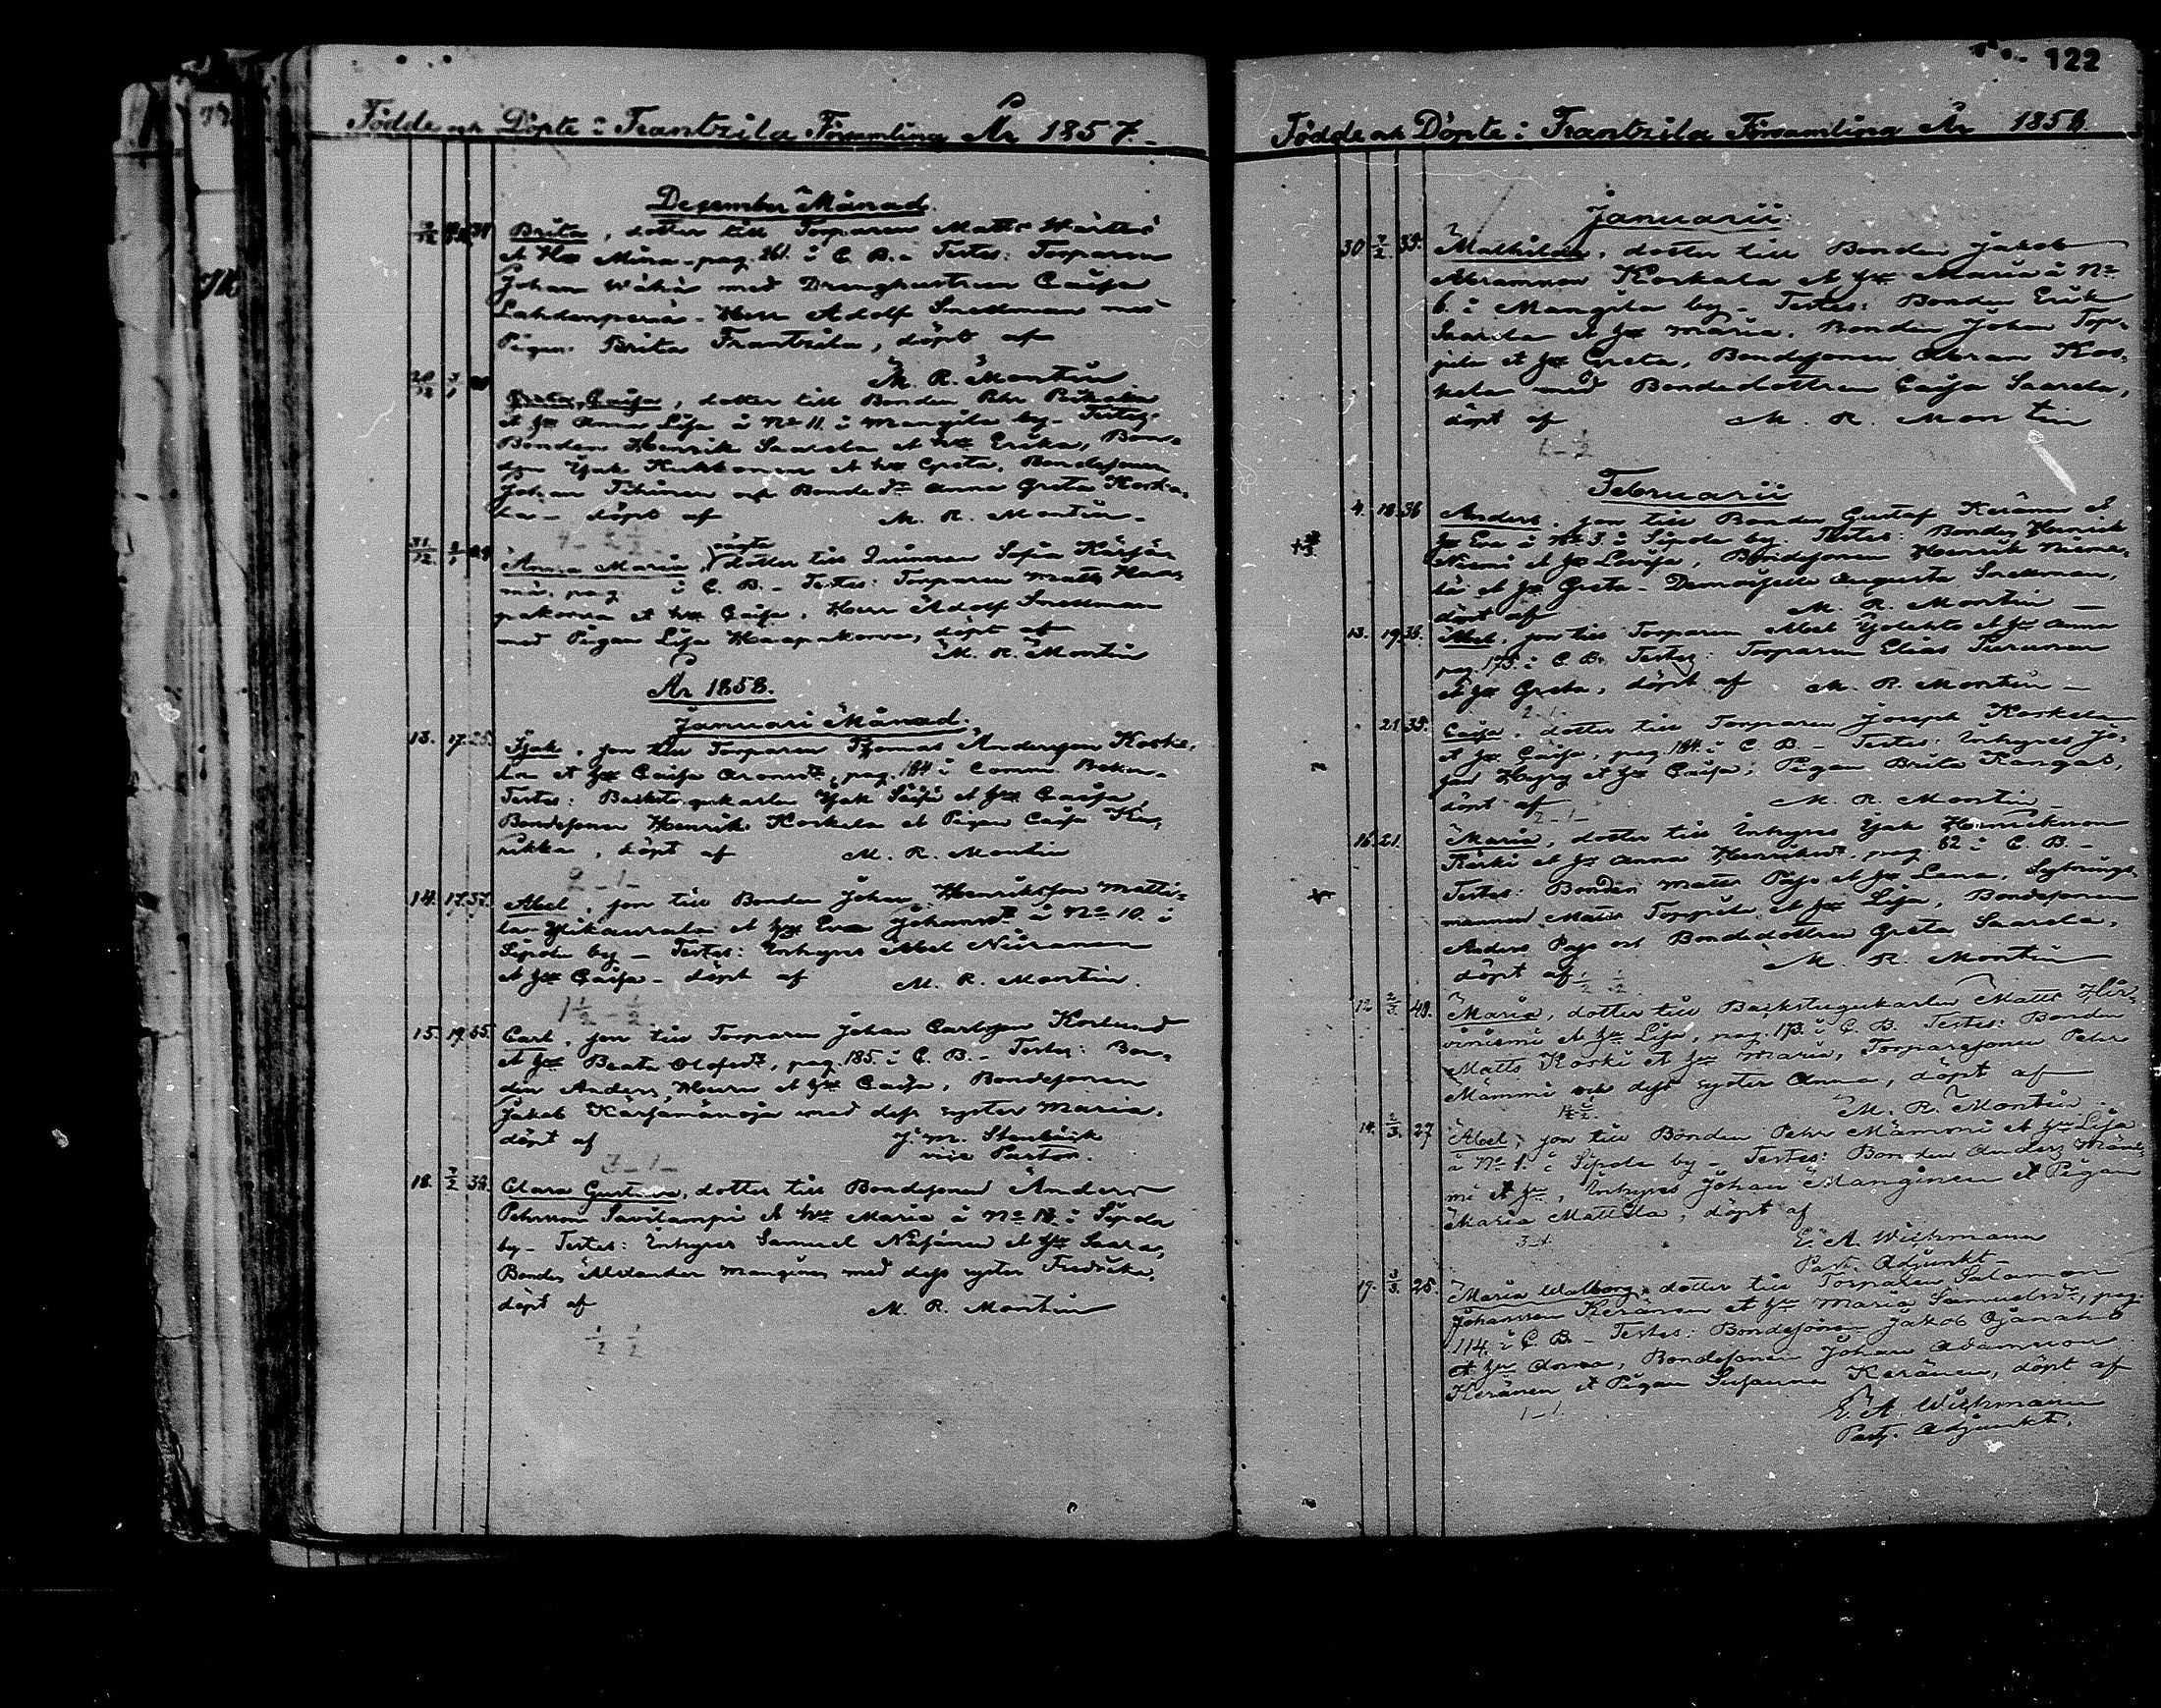 Födde och Döpte i Frantzila Församling År 1857.
December Månad.
Brita, dotter till Torparen Matts
et Hu Mina pag. 261. i C. B. Testes: Torparen
Johan Wähä med Drenghustrun Caisa
Lahdenperä - Herr Adolf Snellman med
Pigan Brita Frantzila, döpt af
M. R. Montin
20/12 3/1
Greta Caisa, dotter till Bonden Pehr
et Hu Anna Lisa å No 11. i Mangila by - Testes:
Bonden Henrik Saarela et Hu Erika, Bon-
den Isak Kukkonen et Hu Greta, Bondesonen
Johan Tihinen och Bonded:r Anna Greta Koske-
la - döpt af M. R. Montin.
31/12
Anna Maria, oäkta dotter till Qvinnan Sofia Kärsä-
mä, pag. i C. B. - Testes: Torparen Matts Haa-
pakorva et Hu Caisa, Herr Adolf Snellman
med Pigan Lisa Haapakorva, döpt af
M. R. Montin
År 1858.
Januari Månad.
13. 17. 25. Isak, son till Torparen Thomas Andersson Koske-
la et Hu Caisa Aronsdr, pag. 184 i Comm. Boken -
Testes: Backstugukarlen Isak et Hu Caisa
Bondesonen Henrik Koskela et Pigan Caisa Ki-
rikka, döpt af M. R. Montin
2-1-
14. 17. 37. Abel, son till Bonden Johan Henriksson Matti-
la Ylikaurala et Hu Eva Johansdr å No 10. i
Sipola by - Testes: Inhyses Abel Niiranen
et Hu Caisa - döpt af M. R. Montin.
1½ - ½
15. 19. 35. Carl, son till Torparen Johan Carlsson Korlund
et Hu Beata Olofsdr, pag. 185. i C. B. - Testes: Bon-
den Anders et Hu Caisa, Bondesonen
Jakob Kärsämänoja med dess syster Maria.
döpt af J. M. Stenbäck
vice Pastor.
7-1-
18. 7/2 34. Clara Gustava, dotter till Bondesonen Anders
Pehrsson Savilampi et Hu Maria å No 18. i Sipola
by - Testes: Inhyses Samuel et Hu Saara,
Bonden Alexander Manginen med dess syster Fredrika,
döpt af M. R. Montin
½ ½
122
Födde och Döpte i Frantzila Församling År 1858
Januarii
30 7/2 39. Mathilda, dotter till Bonden Jakob
Abramsson Koskela et Hu Maria å No
6. i Mangila by - Testes: Bonden Erik
Saarela et Hu Maria, Bonden Johan Top-
pila et Hu Greta, Bondesonen Abram Kos-
kela med Bondedottren Caisa Saarela,
döpt af M. R. Montin
1-½
Februarii
4. 18. 36 Anders, son till Bonden Gustaf Keränen et
Hu Eva å No 3. i Sipola by. Testes: Bonden Henrik
Niemi et Hu Lovisa, Bondesonen Henrik Nieme-
lä et Hu Greta - Demoiselle Augusta Snellman,
döpt af M. R. Montin
13. 19. 36. Abel, son till Torparen Abel et Hu Anna
pag. 175. i C. B. Testes: Torparen Elias Turunen
et Hu Greta, döpt af M. R. Montin
2-1-
21. 35. Caisa, dotter till Torparen Joseph Koskela
et Hu Caisa, pag. 184. i C. B. - Testes: Inhyses Jo-
han et Hu Caisa, Pigan Brita Kangas,
döpt af M. R. Montin
2-1-
16. 21. Maria, dotter till Inhyses Isak Henriksson
Kärki et Hu Anna Henriksdr, pag. 82 i C. B. -
Testes: Bonden Matts Pajo et Hu Lena, Sytnings-
mannen Matts Toppila et Hu Lisa, Bondesonen
Anders Pajo och Bondedottren Greta Saarela,
döpt af M. R. Montin
½ ½
12. 2/3. 40. Maria, dotter till Backstugukarlen Matts Hir-
viniemi et Hu Lisa, pag. 173. i C. B. Testes: Bonden
Matts Koski et Hu Maria, Torparesonen Pehr
Mämmi och dess syster Anna, döpt af
M. R. Montin
14. 2/3. 27 Abel, son till Bonden Pehr Mämmi et Hu Lisa
å No 1. i Sipola by - Testes: Bonden Anders Mäm-
mi et Hu, Inhyses Johan Manginen et Pigan
Maria Mattila, döpt af
3-1. E. A. Wichmann
Past. Adjunkt
19. 3/3. 25. Maria Walborg, dotter till Torparen Salomon
Johansson Keränen et Hu Maria Samuelsdr, pag.
114. i C. B. - Testes: Bondesonen Jakob Ojanaho
et Hu Anna, Bondesonen Johan Adamsson
Keränen et Pigan Susanna Keränen, döpt af
1-1. E. A. Wichmann
Past. Adjunkt.